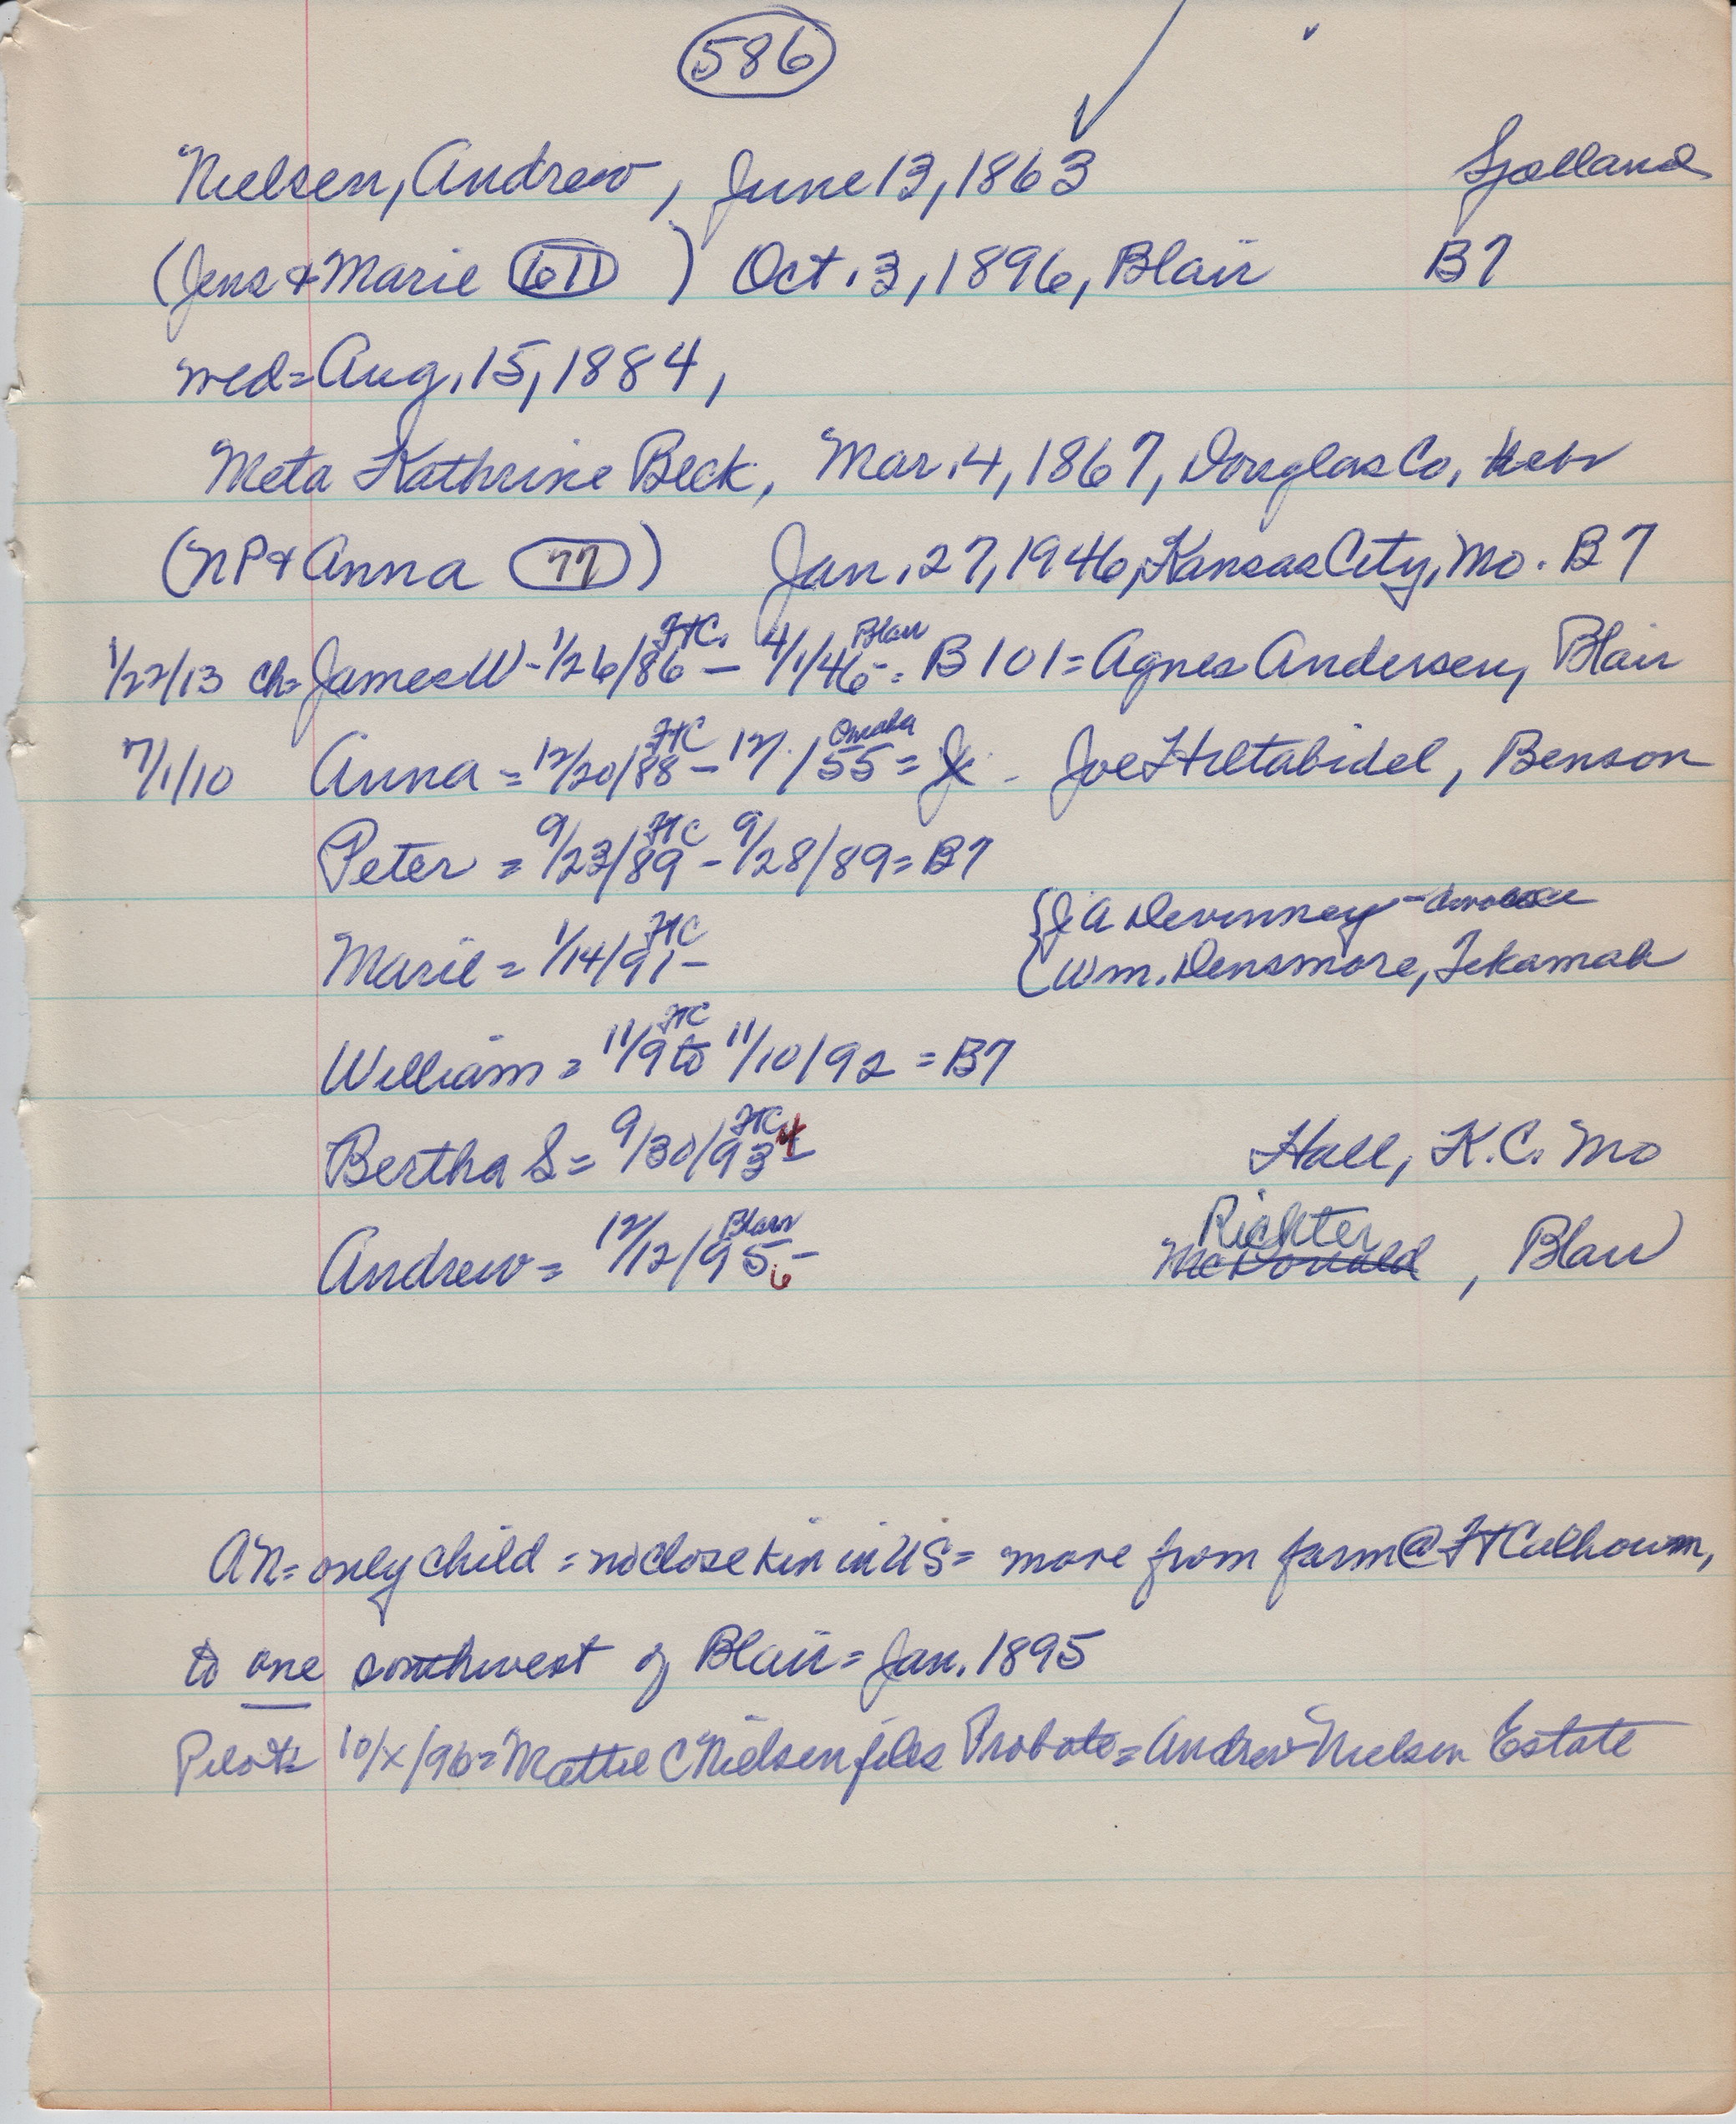 586
Nielsen, Andrew, June 13, 1863 Sjolland
(Jens & Marie 611 ) Oct. 3, 1896, Blair B7
wed=Aug. 15, 1884,
Meta Kathrine Beck, Mar. 4, 1867, Douglas Co, Nebr
(NP & Anna 77) Jan. 27, 1946, Kansas City, Mo. B7
FtC. Blair
1/22/13 ch= James W - 1/26/86 - 4/1/46 - B101 = Agnes Andersen, Blair
FtC Omaha
7/1/10 Anna = 12/20/88 - 12/ /55 = Joe Hiltabidel, Benson
FtC
Peter = 9/23/89 - 9/28/89 = B7
{J A Devinney -
FtC
Marie = 1/14/91 - Wm. Densmore, Tekamah
FtC
William = 11/9 to 11/10/92 = B7
FtC 4
Bertha S = 9/30/93 - Hall, K.C. Mo
Blair Richter
Andrew = 12/12/95 - McDonald, Blair
6
AN = only child = no close kin in US = move from farm @ Ft Calhoun,
to one southwest of Blair = Jan. 1895
Pilot = 10/x/96 = Mattie C Nielsen files Probate = Andrew Nielsen Estate